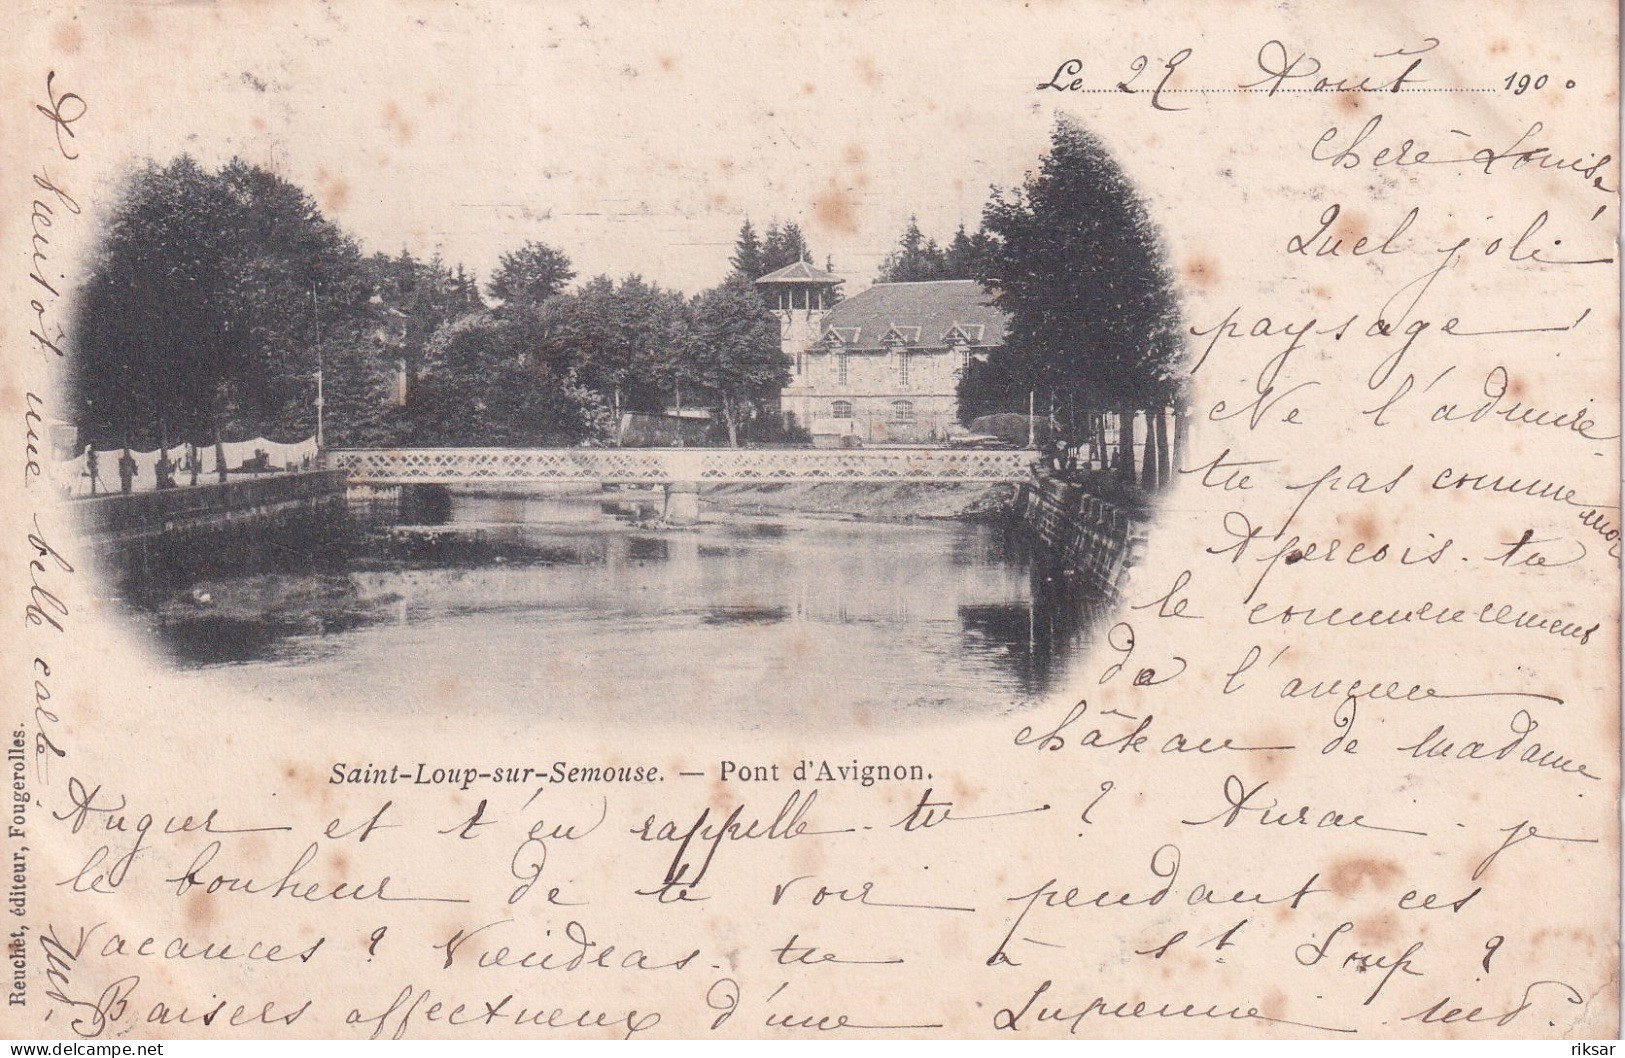 Le 25 Août 1900
Chère Louise,
Quel joli
paysage !
Ne l'admire-
tu pas comme moi
Aperçois-tu
le commencement
de l'ancien
château de Madame
et t'en rappelle-tu ? Aurai-je
le bonheur de te voir pendant ces
vacances ? Viendras-tu à St Loup ?
Baisers affectueux d'une
A bientôt une belle carte.
Saint-Loup-sur-Semouse. — Pont d'Avignon.
Reuchet, éditeur, Fougerolles.
riksar
delcampe.net